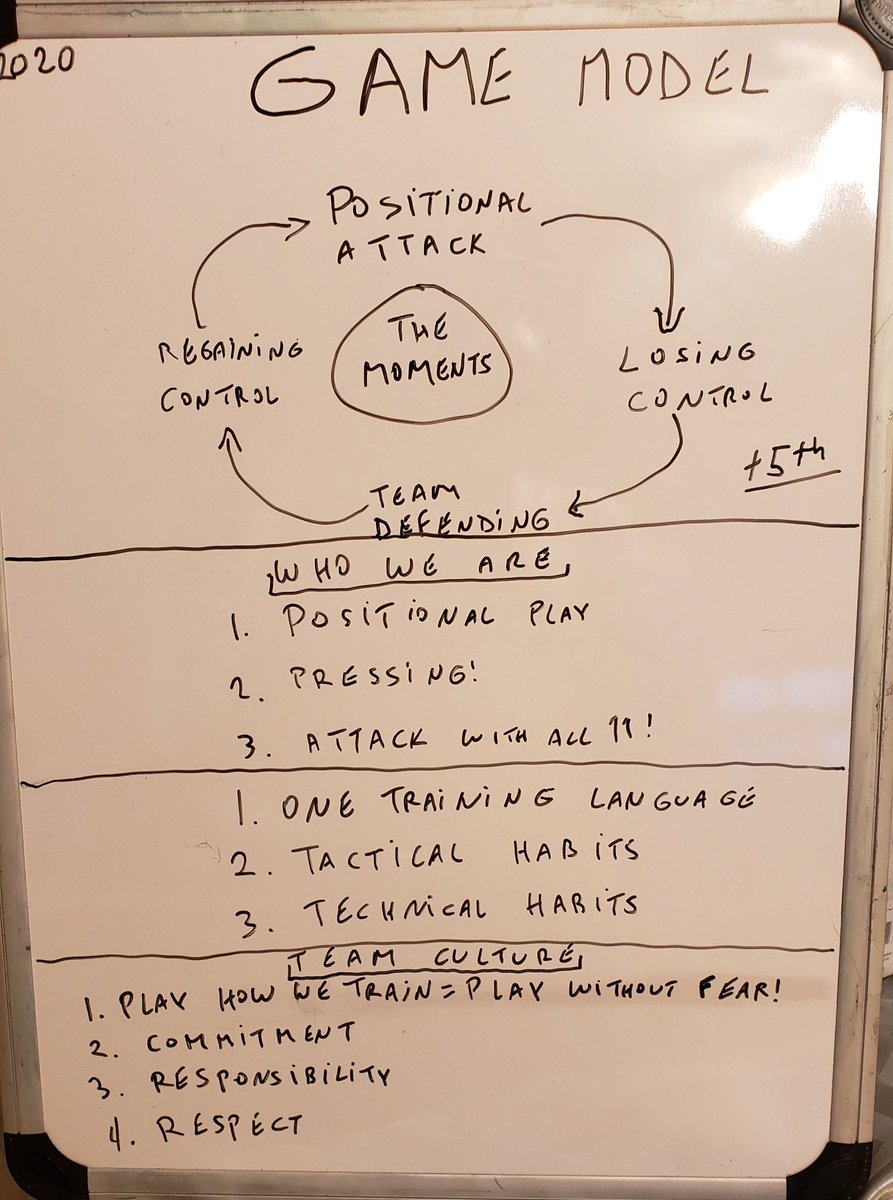 2020
GAME MODEL
POSITIONAL
ATTACK
THE
MOMENTS
REGAINING
CONTROL
LOSING
CONTROL
+5th
TEAM
DEFENDING
WHO WE ARE
1. POSITIONAL PLAY
2. PRESSING!
3. ATTACK WITH ALL 11!
1. ONE TRAINING LANGUAGE
2. TACTICAL HABITS
3. TECHNICAL HABITS
TEAM CULTURE
1. PLAY HOW WE TRAIN = PLAY WITHOUT FEAR!
2. COMMITMENT
3. RESPONSIBILITY
4. RESPECT